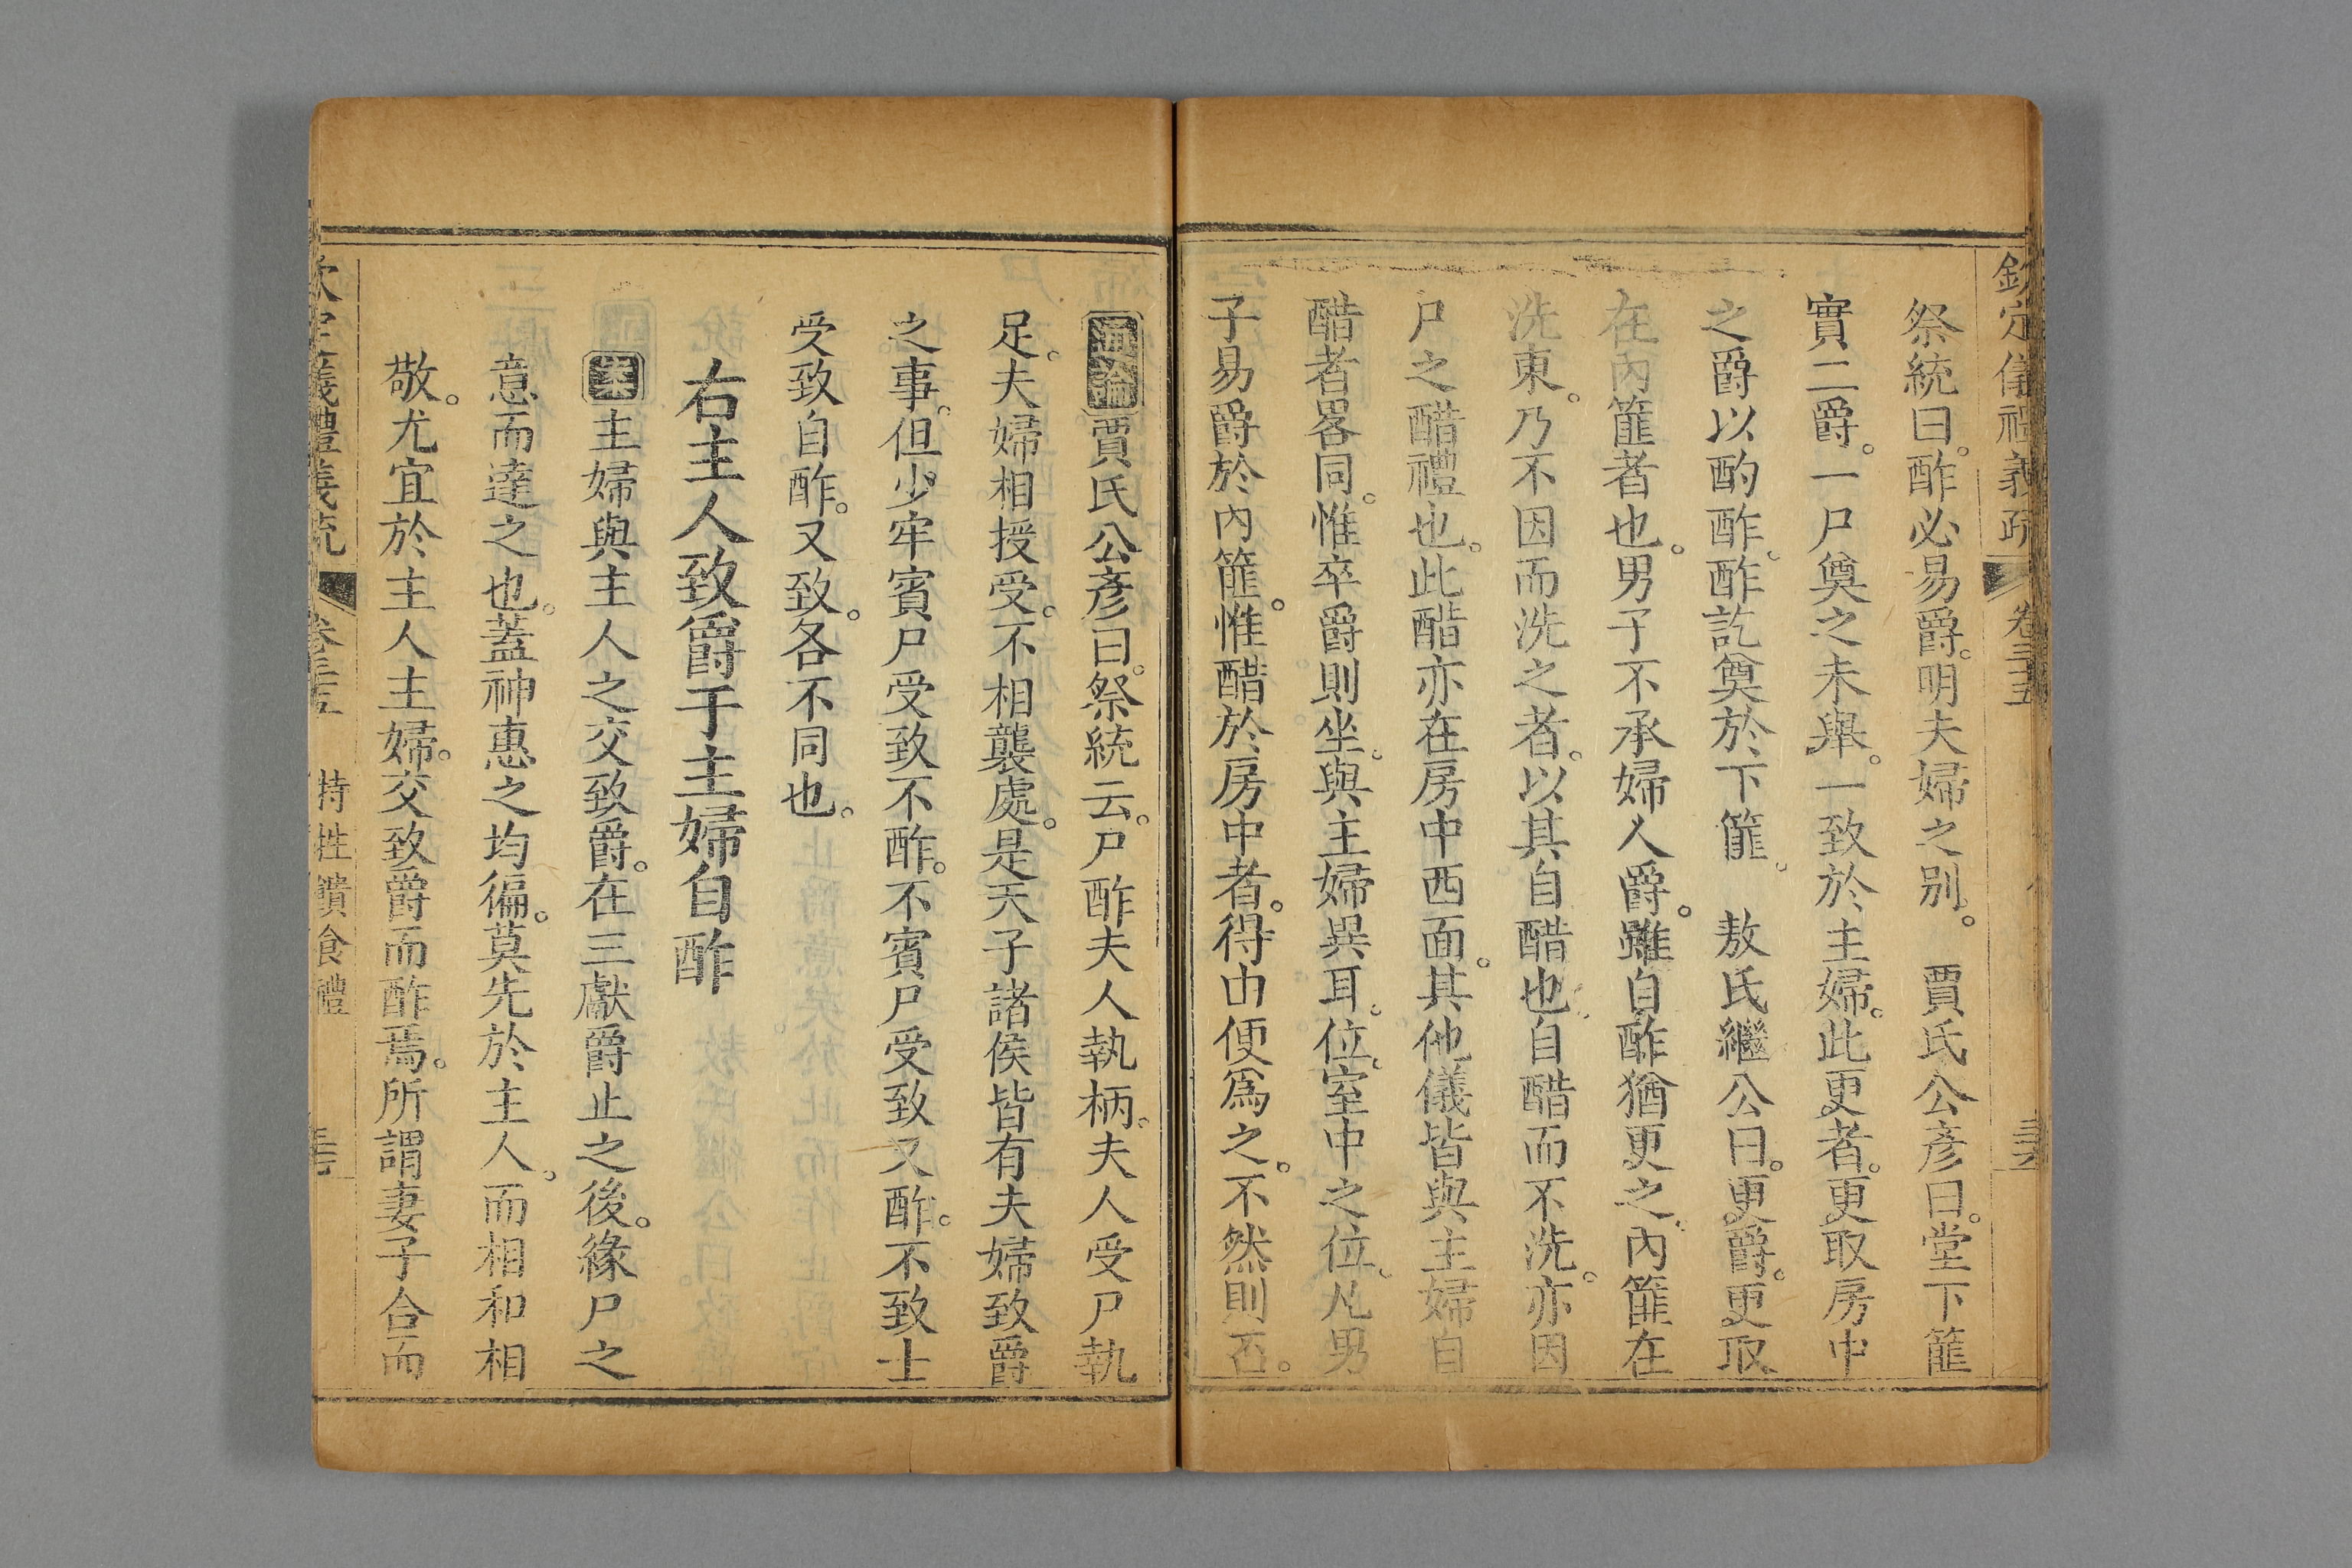 欽定儀禮義疏 卷三十五
祭統曰。酢必易爵。明夫婦之别。 賈氏公彥曰。堂下篚
實二爵。一尸奠之未舉。一致於主婦。此更者。更取房中
之爵以酌酢。酢訖奠於下篚。 敖氏繼公曰。更爵。更取
在內篚者也。男子不承婦人爵。雖自酢猶更之。內篚在
洗東。乃不因而洗之者。以其自醋也。自醋而不洗。亦因
尸之醋禮也。此醋亦在房中西面。其他儀皆與主婦自
醋者畧同。惟卒爵則坐。與主婦異耳。位。室中之位。凡男
子易爵於內篚。惟醋於房中者。得由便爲之。不然則否。
通論賈氏公彥曰。祭統云。尸酢夫人執柄。夫人受尸執
足。夫婦相授受。不相襲處。是天子諸侯皆有夫婦致爵
之事。但少牢賓尸受致不酢。不賓尸受致又酢。不致士
受致自酢。又致。各不同也。
右主人致爵于主婦自酢
案主婦與主人之交致爵。在三獻爵止之後。緣尸之
意而達之也。蓋神惠之均徧。莫先於主人。而相和相
敬。尤宜於主人主婦。交致爵而酢焉。所謂妻子合而
欽定儀禮義疏 卷三十五 特牲饋食禮